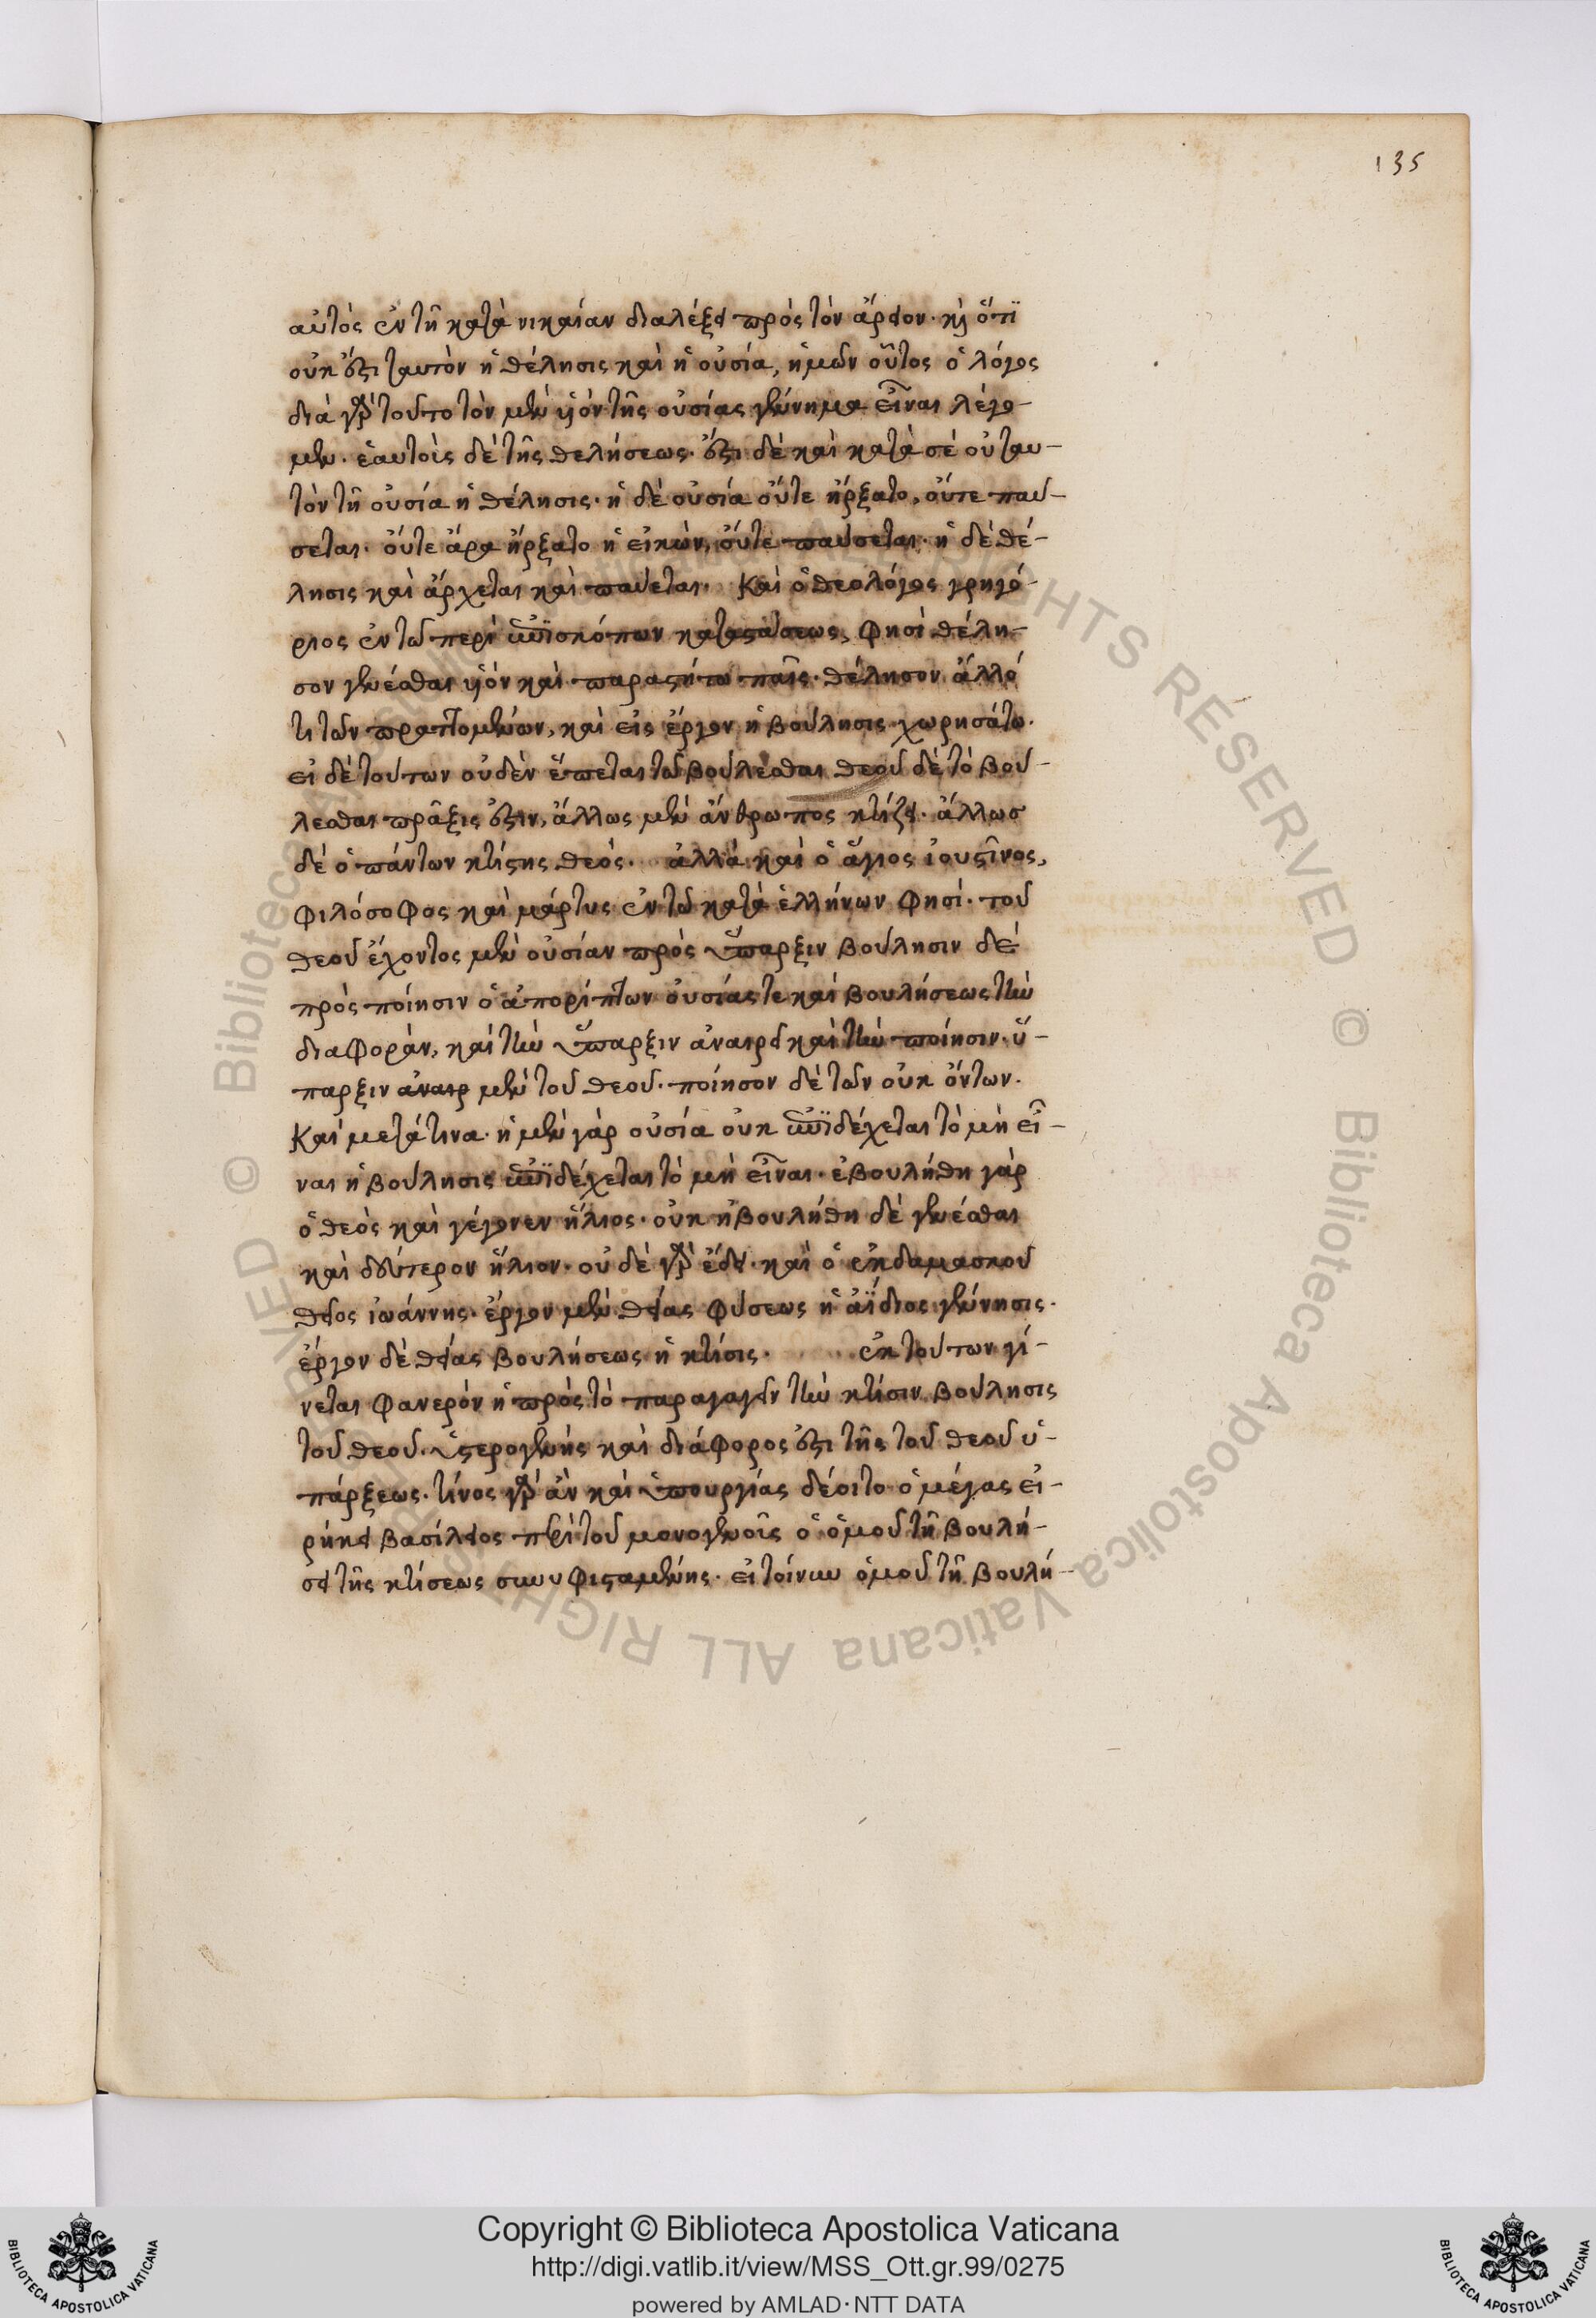 135
αὐτὸς ἐν τῆ κατὰ νικαίαν διαλέξει πρὸς τὸν ἄρειον· καὶ ὅτι
οὐκ ἔστι ταυτὸν ἡ θέλησις καὶ ἡ οὐσία, ἡμῶν οὗτος ὁ λόγος
διὰ γὰρ τοῦτο τὸν μὲν υἱὸν τῆς οὐσίας γέννημα εἶναι λέγο-
μεν. ἑαυτοὶς δὲ τῆς θελήσεως. ἔστι δὲ καὶ κατὰ σὲ οὐ ταυ-
τὸν τῆ οὐσία ἡ θέλησις· ἡ δὲ οὐσία οὔτε ἤρξατο, οὔτε παύ-
σεται. οὔτε ἄρα ἤρξατο ἡ εἰκὼν, οὔτε παύσεται· ἡ δὲ θέ-
λησις καὶ ἄρχεται καὶ παύεται. Καὶ ὁ θεολόγος γρηγό-
ριος ἐν τῶ περὶ ἐπισκόπων καταστάσεως, φησὶ θέλη-
σον γενέσθαι υἱὸν καὶ παραστήτω παῖς. θέλησον ἄλλό
τι τῶν πραττομένων, καὶ εἰς ἔργον ἡ βούλησις χωρησάτω.
εἰ δὲ τούτων οὐδὲν ἕπεται τῶ βούλεσθαι θεοῦ δὲ τὸ βού-
λεσθαι πρᾶξις ἐστιν, ἄλλως μὲν ἄνθρωπος κτίζει. ἄλλωσ
δὲ ὁ πάντων κτίστης θεός. ἀλλὰ καὶ ὁ ἅγιος ἰουστῖνος,
φιλόσοφος καὶ μάρτυς ἐν τῶ κατὰ ἑλλήνων φησί. τοῦ
θεοῦ ἔχοντος μὲν οὐσίαν πρὸς ὕπαρξιν βούλησιν δὲ
πρὸς ποίησιν ὁ ἀπορίπτων οὐσίας τε καὶ βουλήσεως τὴν
διαφορὰν, καὶ τὴν ὕπαρξιν ἀναιρεῖ καὶ τὴν ποίησιν. ὕ-
παρξιν ἀναιρ μὲν τοῦ θεοῦ. ποίησον δὲ τῶν οὐκ ὄντων.
Καὶ μετά τινα. ἡ μὲν γὰρ οὐσία οὐκ ἐπιδέχεται τὸ μὴ εἶ-
ναι ἡ βούλησις ἐπιδέχεται τὸ μὴ εἶναι. ἐβουλήθη γὰρ
ὁ θεὸς καὶ γέγονεν ἥλιος. οὐκ ἠβουλήθη δὲ γενέσθαι
καὶ δεύτερον ἥλιον. οὐ δὲ γὰρ ἔδει. καὶ ὁ ἐκ δαμασκοῦ
θεῖος ἰωάννης. ἔργον μὲν θείας φύσεως ἡ ἀΐδιος γέννησις.
ἔργον δὲ θείας βουλήσεως ἡ κτίσις. ἐκ τούτων γί-
νεται φανερὸν ἡ πρὸς τὸ παραγαγεῖν τὴν κτίσιν βούλησις
τοῦ θεοῦ. ἑτερογενὴς καὶ διάφορος ἐστι τῆς τοῦ θεοῦ ὑ-
πάρξεως. τίνος γὰρ ἂν καὶ ὑπουργίας δέοιτο ὁ μέγας εἰ-
ρήκει βασίλειος περὶ τοῦ μονογενοῖς ὁ ὁμοῦ τῆ βουλή-
σει τῆς κτίσεως συνυφισταμένης. εἰ τοίνυν ὁμοῦ τῆ βουλή-
Copyright © Biblioteca Apostolica Vaticana
http://digi.vatlib.it/view/MSS_Ott.gr.99/0275
powered by AMLAD·NTT DATA